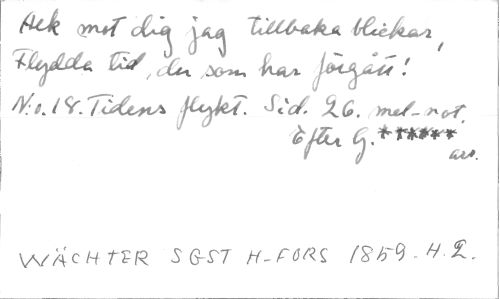 Ack mot dig jag tillbaka blickar,
Flydda tid, du som har förgått!
N:o 18. Tidens flykt. Sid. 26. mel-not.
Efter G. ******
arr.
WÄCHTER SGST H-FORS 1859. H. 2.